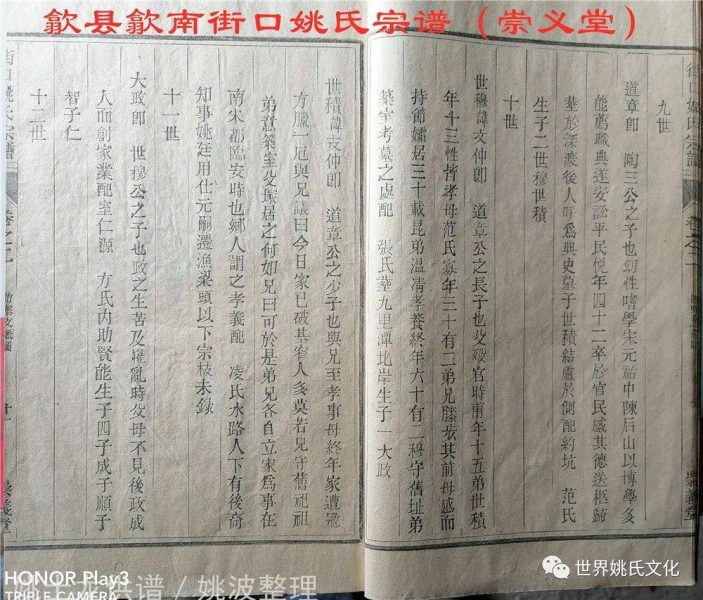 歙县歙南街口姚氏宗谱（崇义堂）
九世
道章郎　陶三公之子也幼性嗜學宋元祐中陳后山以博學多
能薦職典遂安訟平民悅年四十二卒於官民感其德送柩歸
葬於深渡後人呼爲興史墓子世積結廬於側配約坑　范氏
生子二世穆世積
十世
世穆諱文仲郎　道章公之長子也父歿官時甫年十五弟世積
年十三性皆孝母范氏寡年三十有二弟兄
持節孀居三十載昆弟溫凊孝養終年六十有二穆守舊址弟
築室考墓之處配　張氏葬九里潭北岸生子一大政
世積諱文仲郎　道章公之少子也與兄至孝事母終年家遭寇
方臘一厄與兄議曰今日家已破基窄人多莫若兄守舊祀祖
弟意築室父塚居之何如兄曰可於是弟兄各自立家爲事在
南宋都臨安時也鄉人謂之孝義配　凌氏水路人下有後裔
知事姚廷用仕元嗣遷漁梁頭以下宗枝未錄
十一世
大政郎　世穆公之子也政之生苦及罹亂時父母不見後政成
人而創家業配室仁源　方氏内助賢能生子四子成子順子
智子仁
十二世
街口姚氏宗譜
卷之二
十一
崇義堂
HONOR Play3
TRIPLE CAMERA
姚波整理
世界姚氏文化